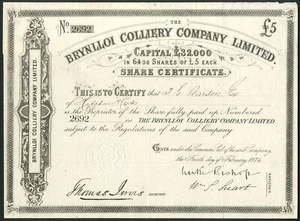 THE
No. 2692
£5
BRYNLLOI COLLIERY COMPANY, LIMITED.
CAPITAL £32.000
IN 6400 SHARES OF £5 EACH
SHARE CERTIFICATE.
THIS IS TO CERTIFY that
of
is the Proprietor of the Share fully paid up Numbered
2692 in THE BRYNLLOI COLLIERY COMPANY LIMITED
subject to the Regulations of the said Company
GIVEN under the Common Seal of the said Company,
the day of February 187
SECRETARY
BRYNLLOI COLLIERY COMPANY, LIMITED.